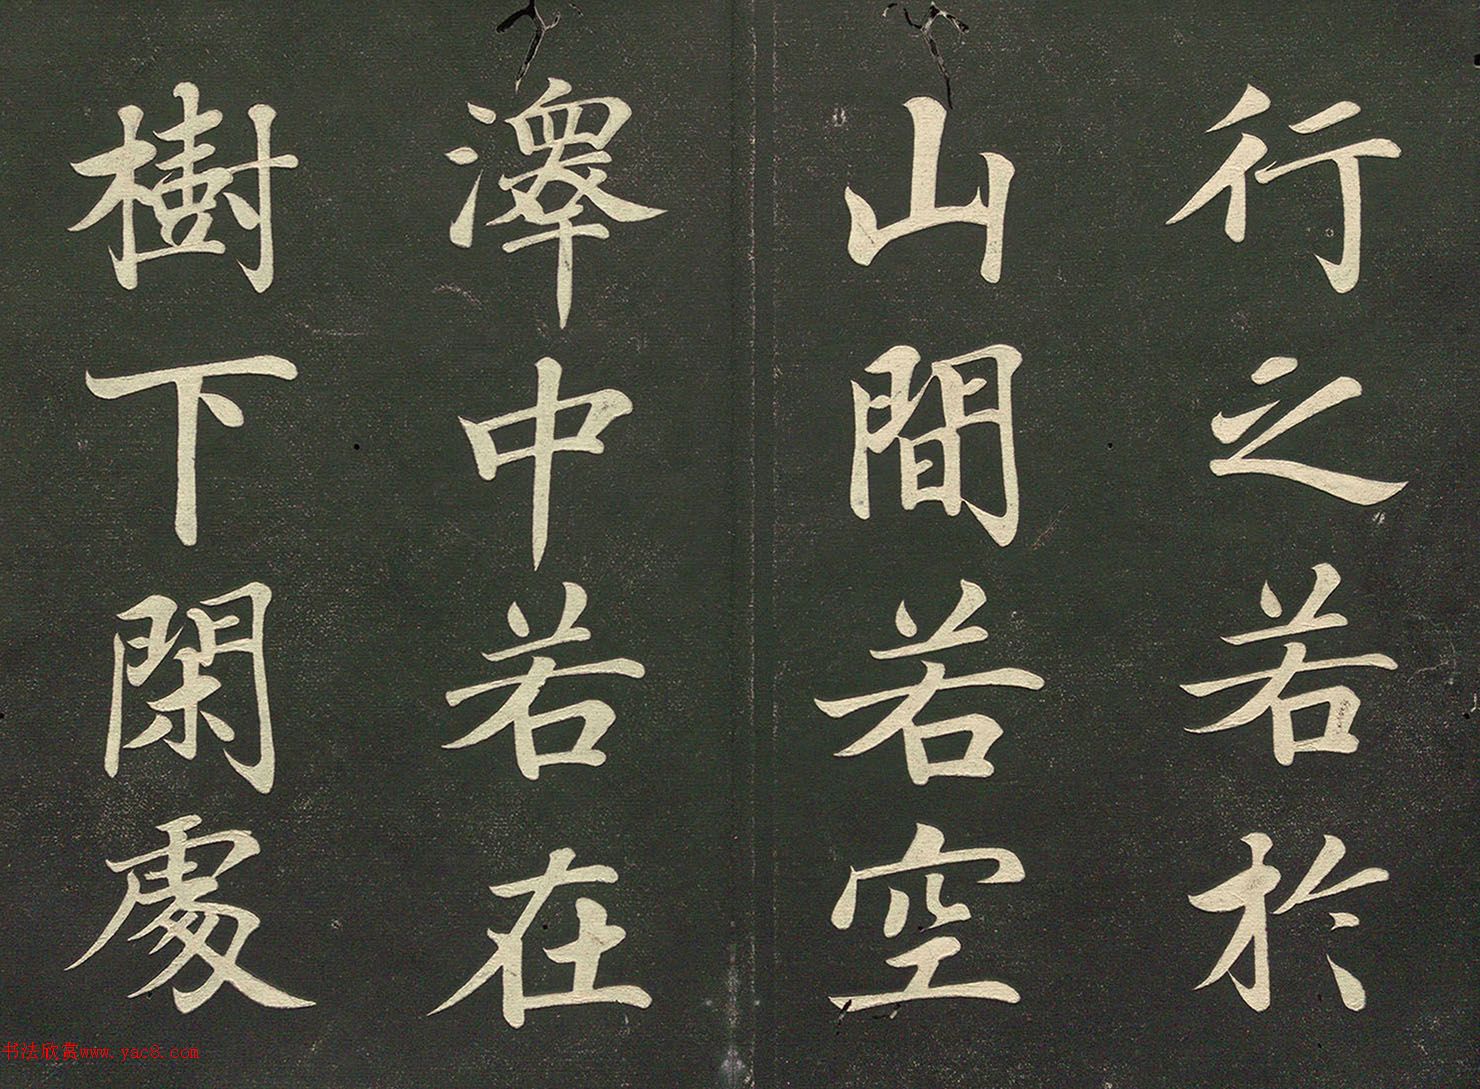 行之若於
山間若空
澤中若在
樹下閑處
书法欣赏www.yac8.com